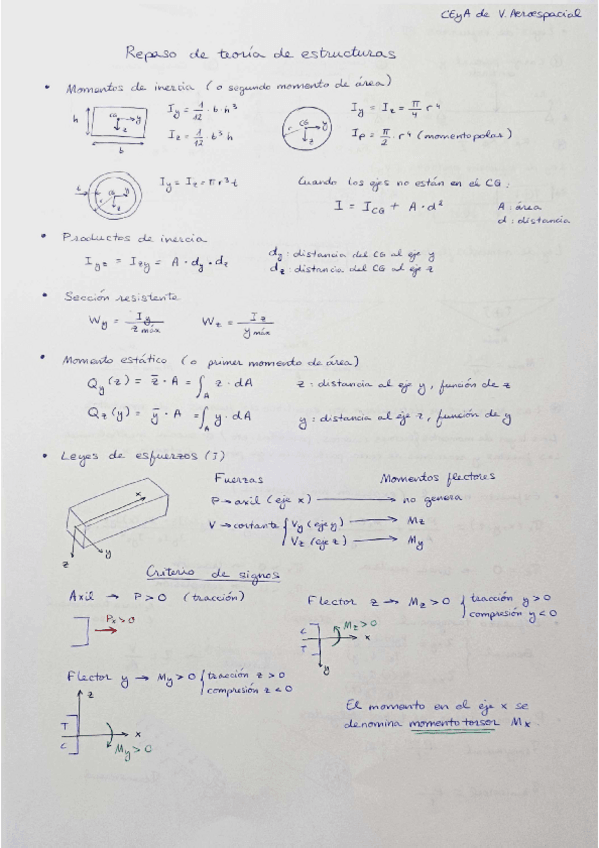 CEyA de V. Aeroespacial
Repaso de teoría de estructuras
• Momentos de inercia (o segundo momento de área)
h b CG y z I_y = 1/12 · b · h³
I_z = 1/12 · b³ h
r CG y z I_y = I_z = π/4 r⁴
I_p = π/2 · r⁴ (momento polar)
t r CG y z I_y = I_z = π r³ t
Cuando los ejes no están en el CG:
I = I_CG + A · d²
A: área
d: distancia
• Productos de inercia
I_yz = I_zy = A · d_y · d_z
d_y: distancia del CG al eje y
d_z: distancia del CG al eje z
• Sección resistente
W_y = I_y / z máx W_z = I_z / y máx
• Momento estático (o primer momento de área)
Q_y(z) = z̄ · A = ∫_A z · dA z: distancia al eje y, función de z
Q_z(y) = ȳ · A = ∫_A y · dA y: distancia al eje z, función de y
• Leyes de esfuerzos (I)
x y z
Fuerzas Momentos flectores
P → axil (eje x) → no genera
V → cortante { V_y (eje y) → M_z
V_z (eje z) → M_y
Criterio de signos
Axil → P > 0 (tracción)
P_x > 0
Flector z → M_z > 0 { tracción y > 0
compresión y < 0
C T M_z > 0 x y
Flector y → M_y > 0 { tracción z > 0
compresión z < 0
z T C x M_y > 0
El momento en el eje x se
denomina momento torsor M_x